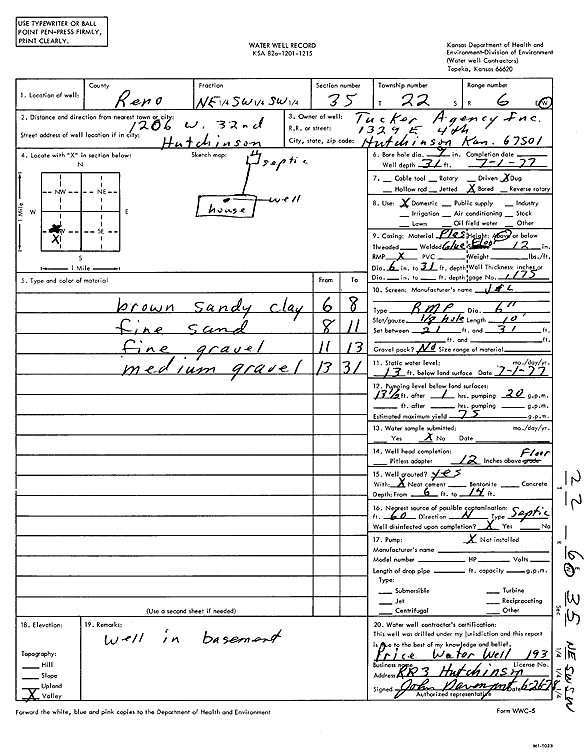 USE TYPEWRITER OR BALL
POINT PEN-PRESS FIRMLY,
PRINT CLEARLY.
WATER WELL RECORD
KSA 82a-1201-1215
Kansas Department of Health and
Environment-Division of Environment
(Water well Contractors)
Topeka, Kansas 66620
1. Location of well:
County
Reno
Fraction
NE 1/4 SW 1/4 SW 1/4
Section number
35
Township number
T 22 S
Range number
R 6 E/W
2. Distance and direction from nearest town or city:
1206 W. 32nd
Street address of well location if in city:
Hutchinson
3. Owner of well: Tucker Agency Inc.
R.R. or street: 1329 E 4th
City, state, zip code: Hutchinson Kan. 67501
4. Locate with "X" in section below:
N
NW NE
W E
SE
X
S
1 Mile
1 Mile
Sketch map:
septic
house
well
5. Type and color of material From To
brown sandy clay 6 8
fine sand 8 11
fine gravel 11 13
medium gravel 13 31
(Use a second sheet if needed)
6. Bore hole dia. 9 in. Completion date
Well depth 31 ft. 7-1-77
7. Cable tool Rotary Driven X Dug
Hollow rod Jetted X Bored Reverse rotary
8. Use: X Domestic Public supply Industry
Irrigation Air conditioning Stock
Lawn Oil field water Other
9. Casing: Material Plas Height: Above or below
Threaded Welded Glue Floor 12 in.
RMP X PVC Weight lbs./ft.
Dia. 6 in. to 31 ft. depth Wall Thickness: inches or
Dia. in. to ft. depth gage No. .175
10. Screen: Manufacturer's name
J & L
Type RMP Dia. 6"
Slot/gauze 1/8 hole Length 10'
Set between 21 ft. and 31 ft.
ft. and ft.
Gravel pack? No Size range of material
11. Static water level: mo./day/yr.
13 ft. below land surface Date 7-1-77
12. Pumping level below land surfaces:
13 1/2 ft. after 1 hrs. pumping 20 g.p.m.
ft. after hrs. pumping g.p.m.
Estimated maximum yield 75 g.p.m.
13. Water sample submitted: mo./day/yr.
Yes X No Date
14. Well head completion: Floor
Pitless adapter 12 Inches above grade
15. Well grouted? yes
With: X Neat cement Bentonite Concrete
Depth: From 6 ft. to 14 ft.
16. Nearest source of possible contamination:
ft. 60 Direction N Type Septic
Well disinfected upon completion? X Yes No
17. Pump: X Not installed
Manufacturer's name
Model number HP Volts
Length of drop pipe ft. capacity g.p.m.
Type:
Submersible Turbine
Jet Reciprocating
Centrifugal Other
18. Elevation:
Topography:
Hill
Slope
Upland
X Valley
19. Remarks:
well in basement
20. Water well contractor's certification:
This well was drilled under my jurisdiction and this report
is true to the best of my knowledge and belief.
Price Water Well 193
Business name License No.
Address RR3 Hutchinson
Signed John Davenport Date 6-26-78
Authorized representative
Forward the white, blue and pink copies to the Department of Health and Environment
Form WWC-5
22 - 6W 35 NE SW SW
Sec 1/4 1/4 1/4